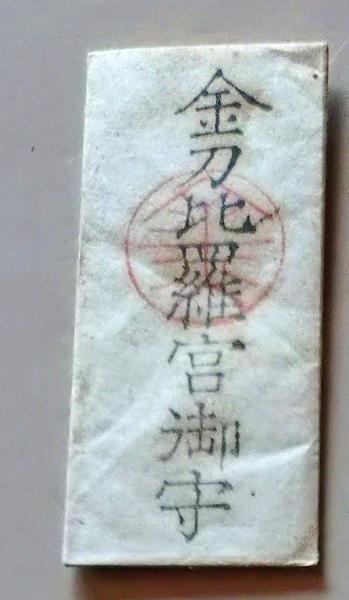 金刀比羅宮御守
金